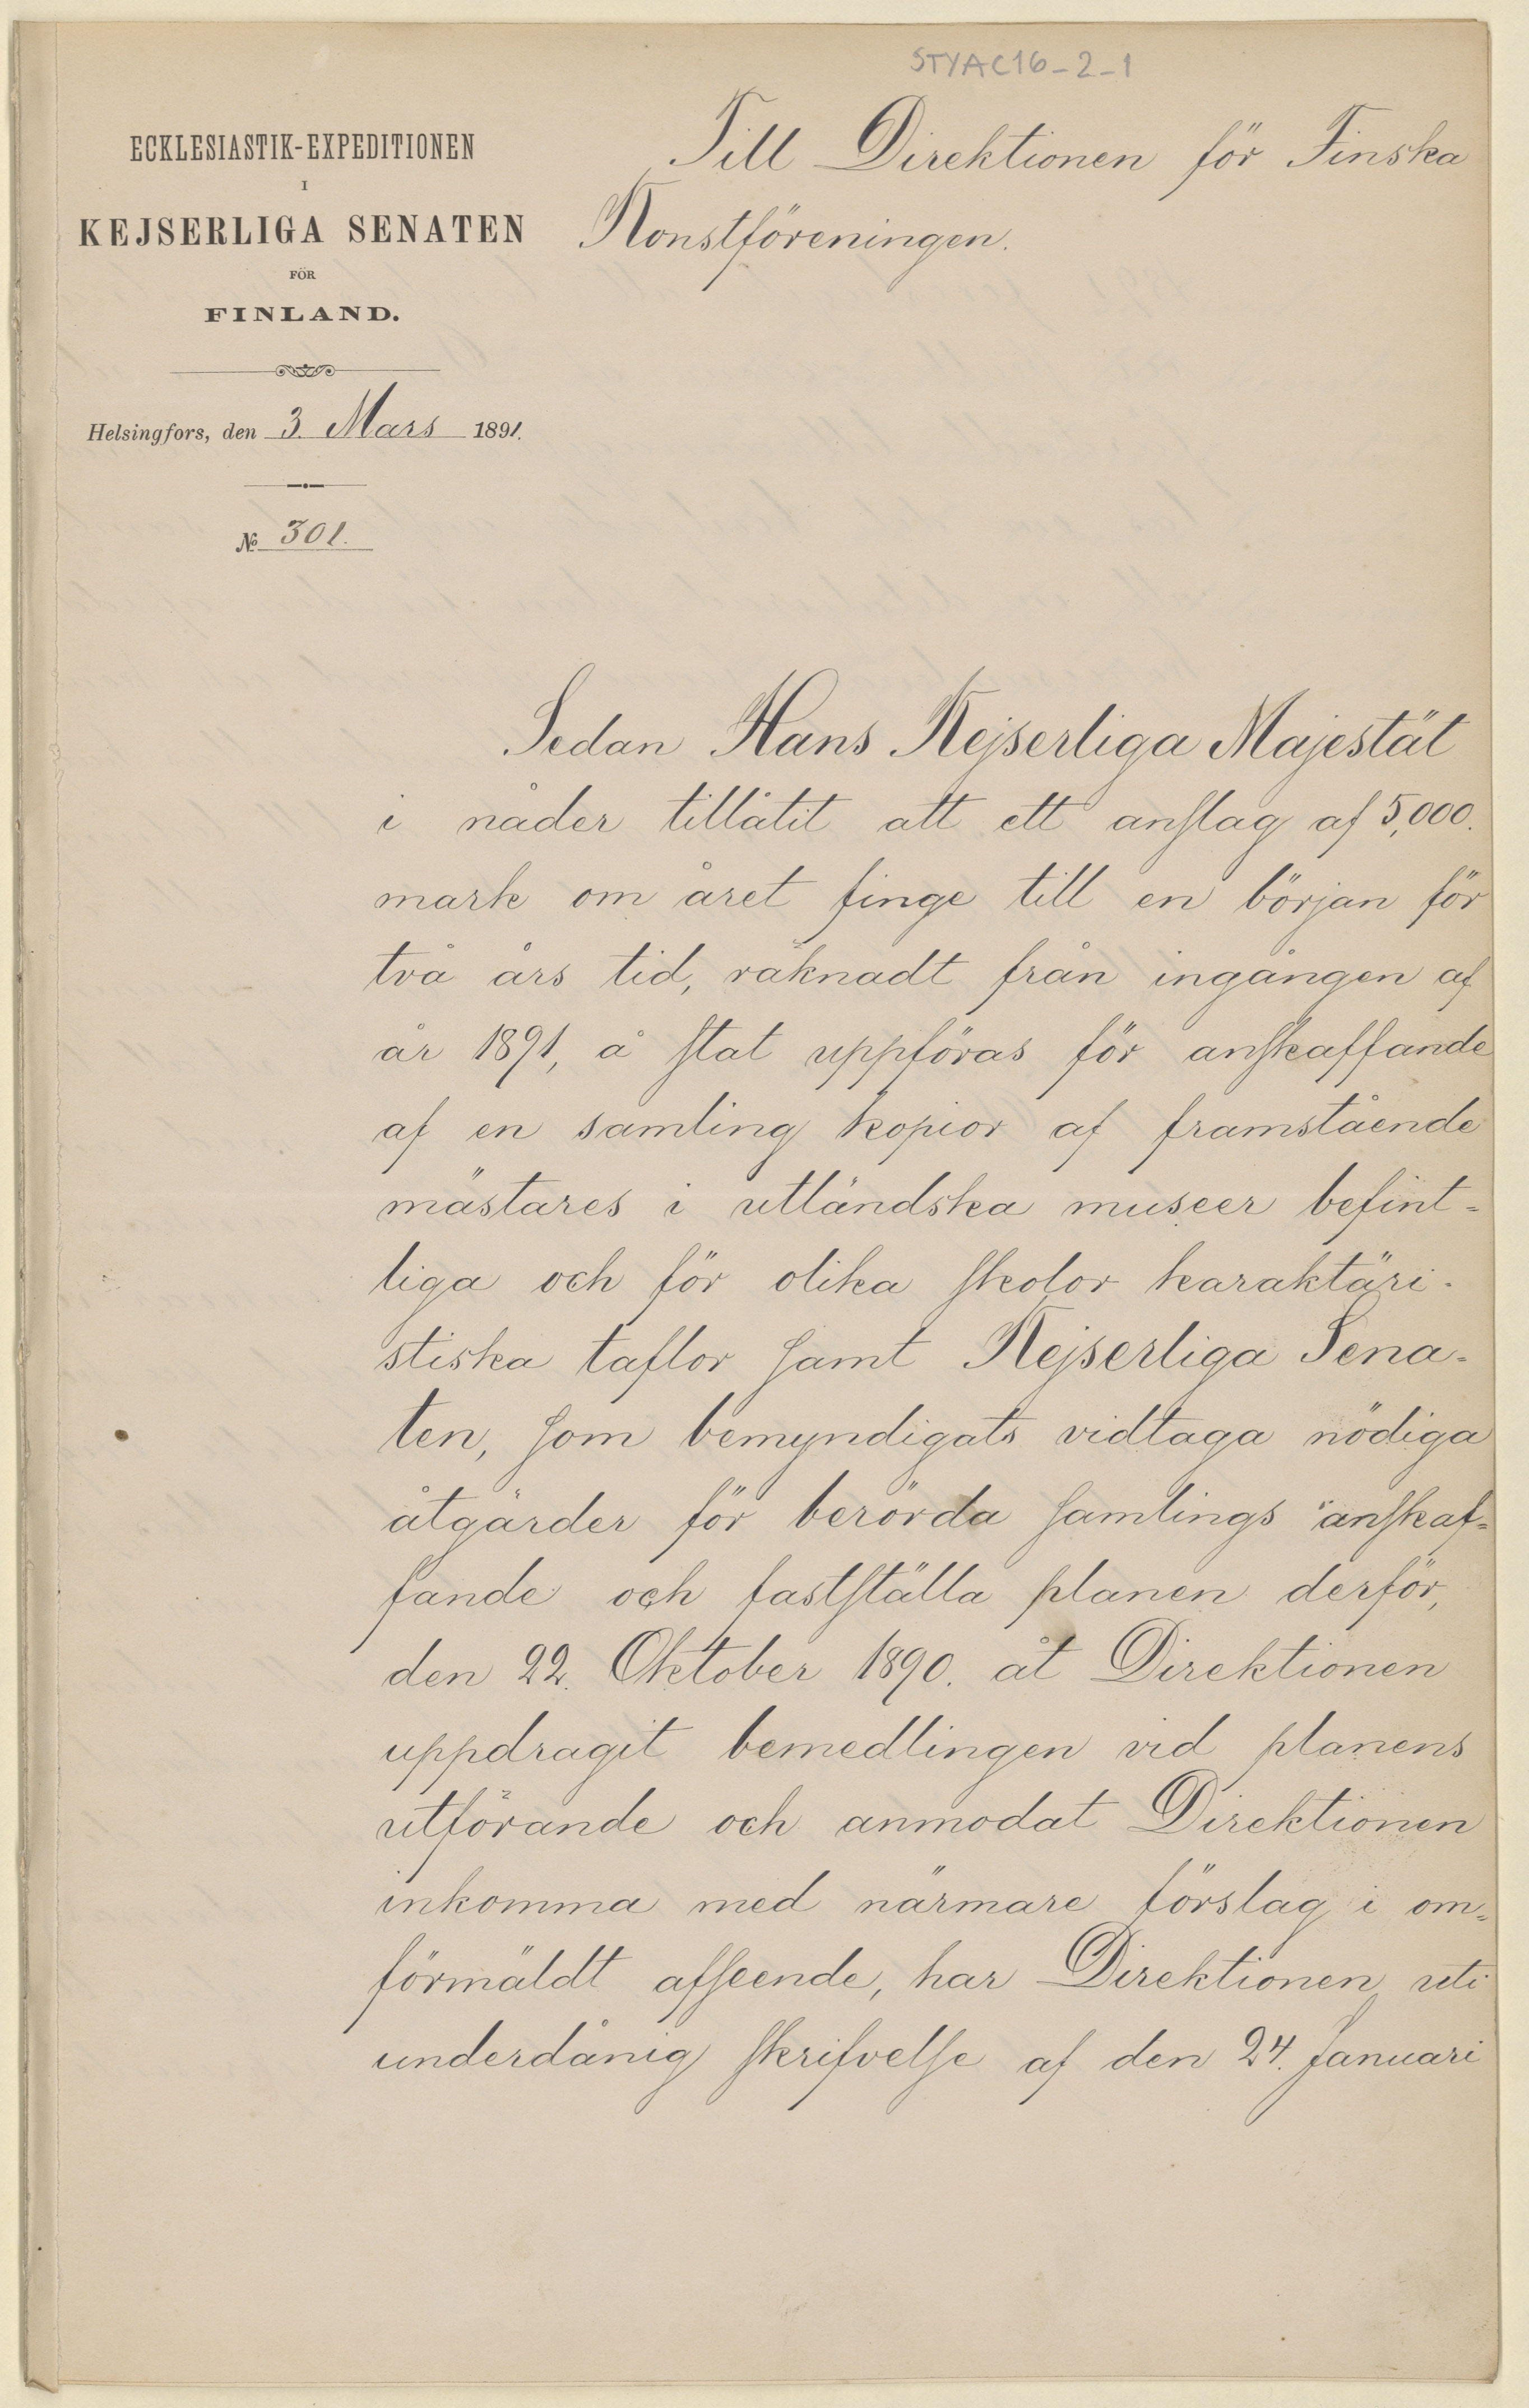 STYAC16-2-1
ECKLESIASTIK-EXPEDITIONEN
I
KEJSERLIGA SENATEN
FÖR
FINLAND.
Helsingfors, den 3. Mars 1891.
№ 301.
Till Direktionen för Finska
Konstföreningen.
Sedan Hans Kejserliga Majestät
i nåder tillåtit att ett anslag af 5,000.
mark om året finge till en början för
två års tid, räknadt från ingången af
år 1891, å stat uppföras för anskaffande
af en samling kopior af framstående
mästares i utländska museer befint-
liga och för olika skolor karaktäri-
stiska taflor samt Kejserliga Sena-
ten, som bemyndigats vidtaga nödiga
åtgärder för berörda samlings anskaf-
fande och fastställa planen derför,
den 22. Oktober 1890. åt Direktionen
uppdragit bemedlingen vid planens
utförande och anmodat Direktionen
inkomma med närmare förslag i om-
förmäldt afseende, har Direktionen uti
underdånig skrifvelse af den 24. Januari